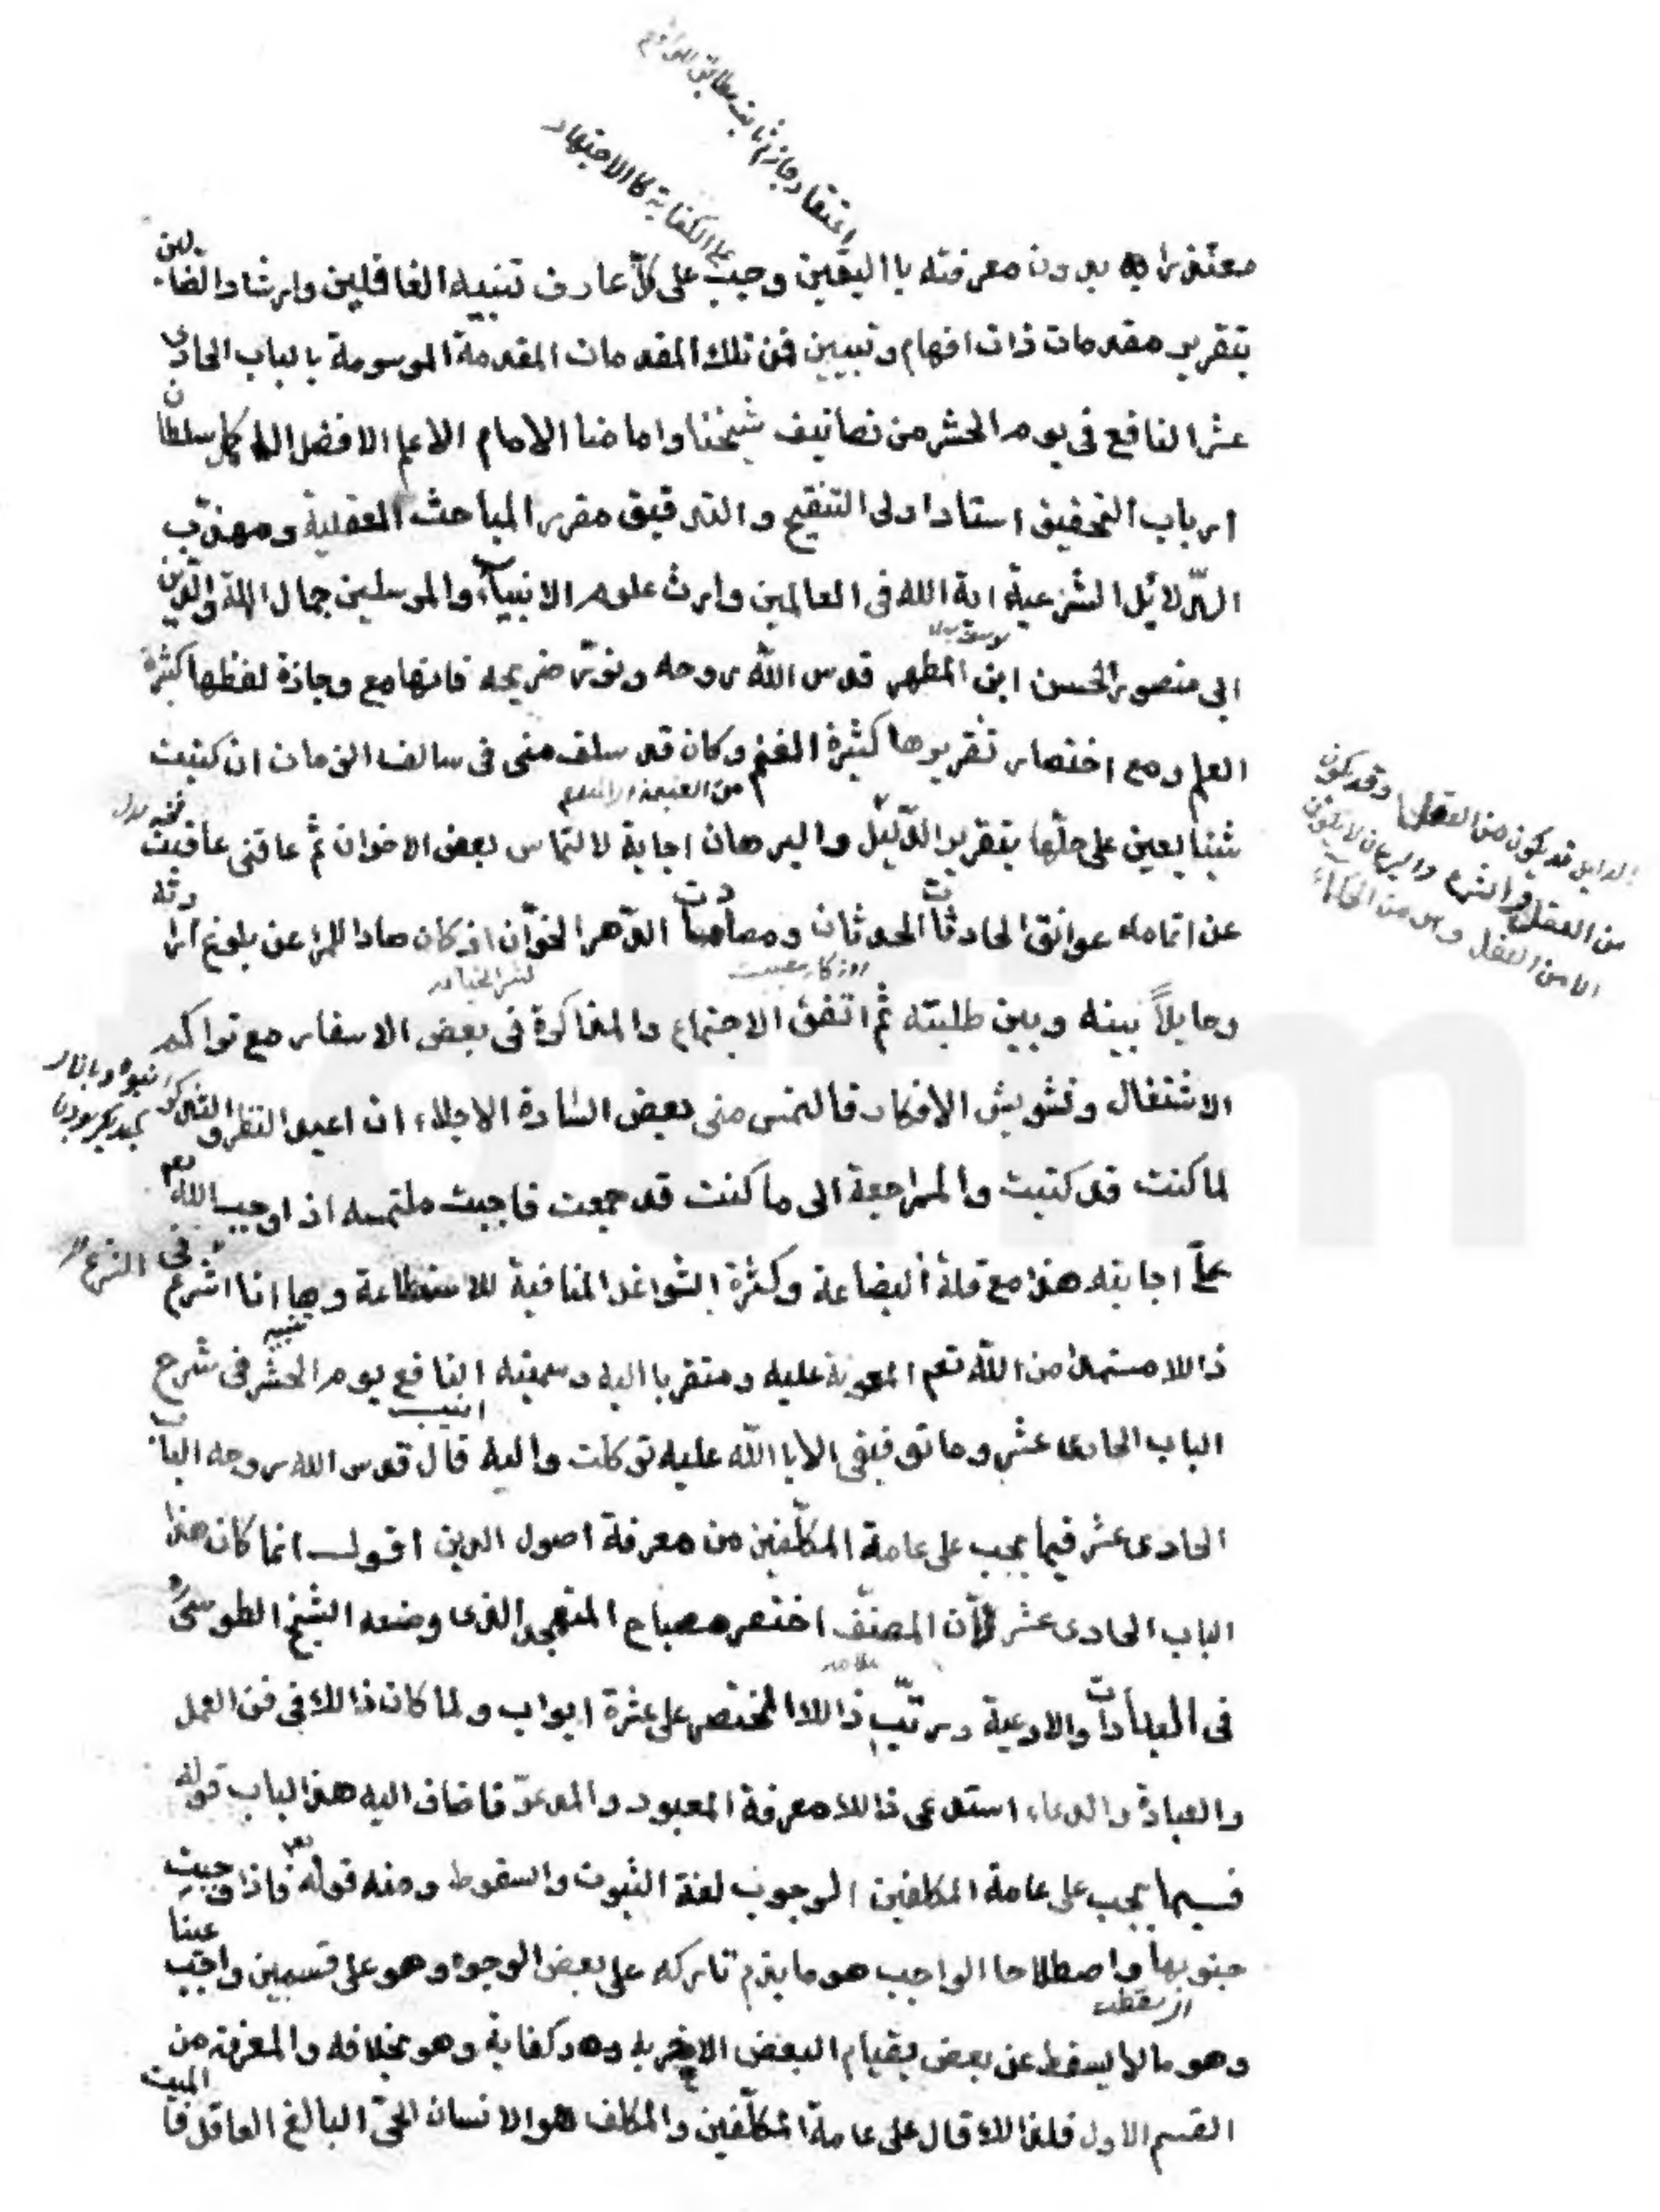 اعتقاد جازم ثابت مطابق للواقع
على الكفاية كالاجتهاد
بدون معرفته بااليقين وجب على كلّ عارف تنبيه الغافلين وارشاد الضالين
بتقرير مقدمات ذات افهام وتبيين فمن تلك المقدمات المقدمة الموسومة بالباب الحادى
عشر النافع فى يوم الحشر من تصانيف شيخنا وامامنا الامام الاعلم الافضل الاكمل سلطان
ارباب التحقيق استاد اولى التنقيح والتدقيق مقرر المباحث العقلية ومهذّب
الدّلائل الشرعية اية الله فى العالمين وارث علوم الانبياء والمرسلين جمال الملة والدّين
ابى منصور الحسن ابن المطهر قدس الله روحه ونوّر ضريحه فانها مع وجازة لفظها كثيرة
العلم ومع اختصار تقريرها كثيرة الغنم وكان قد سلف منى فى سالف الزمان ان كتبت
من الغنيمة
شيئا يعين على حلّها بتقرير الدّليل والبرهان اجابة لالتماس بعض الاخوان ثم عاقنى عاقبت
عن اتمامه عوائق الحادثات الحدثان ومصادمات الدّهر الخوّان اذ كان صادا للمرا عن بلوغ ارادته
وحايلاً بينه وبين طلبته ثم اتفق الاجتماع والمذاكرة فى بعض الاسفار مع تراكم
الاشتغال وتشويش الافكار فالتمس منى بعض السّادة الاجلاء ان اعيد النظر والتذكر
لما كنت قد كتبت والمراجعة الى ما كنت قد جمعت فاجبت ملتمسه اذ اوجب الله تعم
علىّ اجابته هذا مع قلة البضاعة وكثرة الشواغل المنافية للاستطاعة وها انا اشرع فى
ذالك مستمدا من الله تعم المعونة عليه ومتقربا اليه وسميته النافع يوم الحشر فى شرح
الباب الحادى عشر وما توفيقى الا باالله عليه توكلت واليه انيب قال قدس الله روحه الباب
الحادى عشر فيما يجب على عامة المكلّفين من معرفة اصول الدين اقول انما كان هذا
الباب الحادى عشر لأن المصنّف اختصر مصباح المتهجد الذى وضعه الشيخ الطوسى ره
فى العبادات والادعية ورتّب ذالك المختصر على عشرة ابواب ولما كان ذالك فى فن العمل
والعبادة والدعاء استدعى ذالك معرفة المعبود والمدعوّ فاضاف اليه هذا الباب قوله
فيما يجب على عامة المكلفين الوجوب لغة الثبوت والسقوط ومنه قوله تعم فاذا وجبت
جنوبها واصطلاحا الواجب هو ما يذم تاركه على بعض الوجوه وهو على قسمين واجب عينا
اى سقطت
وهو ما لا يسقط عن بعض بقيام البعض الاخر به وهو كفاية وهو بخلافه والمعرفة من
القسم الاول فلذالك قال على عامة المكلّفين والمكلف هو الانسان الحىّ البالغ العاقل فالميت
الدليل قد يكون من العقل وقد يكون
من العقل والشرع والبرهان لا يكون
الا من العقل